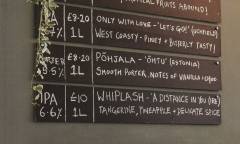 FRUITS ABOUND)
£8·20 ONLY WITH LOVE - 'LET'S GO!'
7% 1L WEST COAST - PINEY + BITTERLY TASTY!
£8·20 PÕHJALA - 'ÖHTU' (ESTONIA)
1L SMOOTH PORTER, NOTES OF VANILLA +
IPA £10 WHIPLASH - 'A DISTANCE IN YOU (IRE)
6·6% 1L TANGERINE, PINEAPPLE + DELICATE SPICE